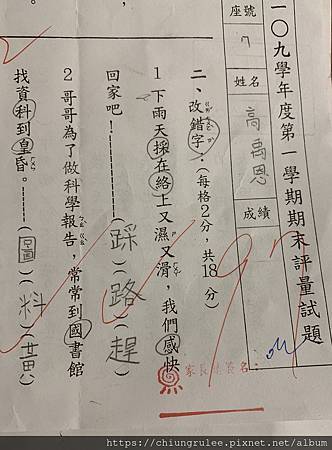 一○九學年度第一學期期末評量試題
座號
7
姓名
高禹恩
成績
家長簽名：
二、改錯字：(每格2分，共18分)
1 下雨天採在絡上又濕又滑，我們感快
回家吧！(踩)(路)(趕)
2 哥哥為了做科學報告，常常到國書館
找資科到皇昏。(圖)(料)(黃)
https://chiungrulee.pixnet.net/album